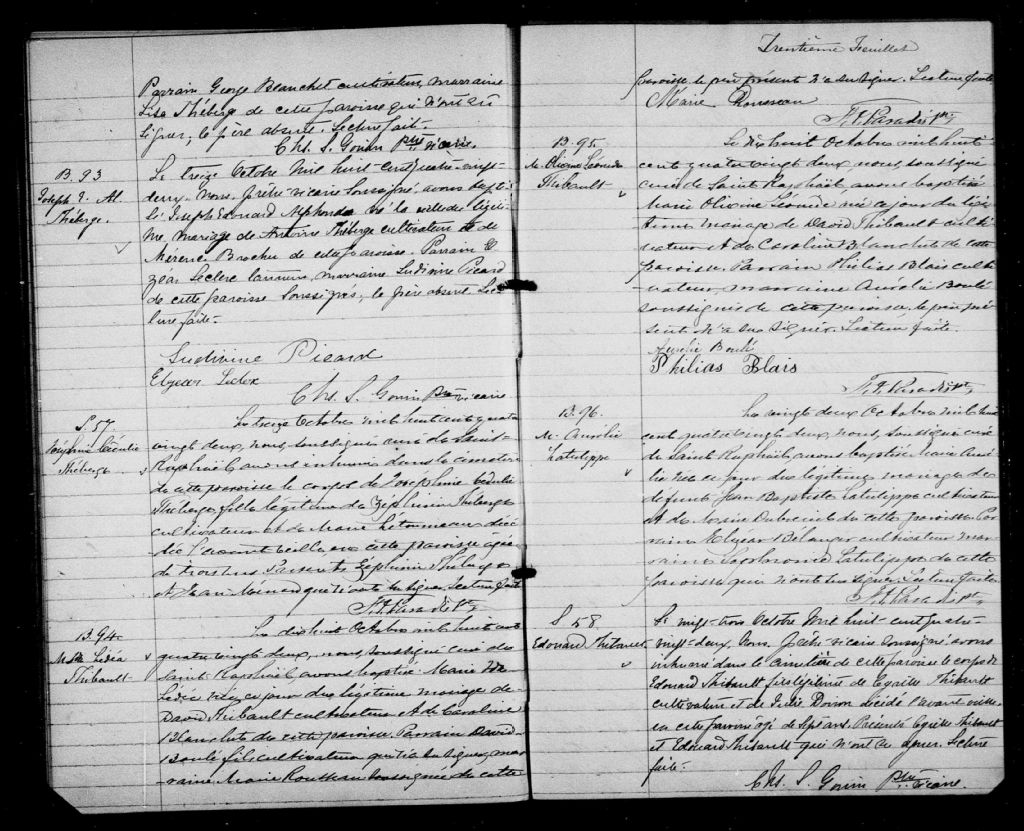 Parrain George Blanchet cultivateur, marraine
Lisa Théberge de cette paroisse qui n'ont su
signer, le père absent. Lecture faite.
Chs. S. Gouin Ptre vicaire.
B. 93
Joseph E. Al.
Théberge.
Le treize Octobre Mil huit cent quatre-vingt-
deux, Nous, Prêtre vicaire soussigné, avons bapti-
sé Joseph Edouard Alphonse né la veille du légiti-
me mariage de Antoine Théberge cultivateur et de
Mérence Brochu de cette paroisse. Parrain El-
zéar Leclerc, marraine Ludivine Picard
de cette paroisse soussignés, le père absent. Lec-
ture faite.
Ludivine Picard
Elzear
Chs. S. Gouin Ptre vicaire
S. 57
Joséphine Bédulie
Théberge
Le treize Octobre mil huit cent quatre
vingt deux, nous, soussigné curé de Saint-
Raphaël, avons inhumé dans le cimetière
de cette paroisse le corps de Josephine
Théberge fille légitime de Zéphirin Théberge
cultivateur et de Marie Létourneau décé-
dée l'avant veille en cette paroisse agée
de trois ans. Présents Zéphirin Théberge
et Jean qui n'ont su signer. Lecture faite
Ptre
B. 94
M. Lédéa
Thibault
Le dix huit Octobre mil huit cent
quatre vingt deux, nous, soussigné curé de
Saint Raphaël, avons baptisé Marie
Lédéa née ce jour du légitime mariage de
David Thibault cultivateur et de Caroline
Blanchet de cette paroisse. Parrain David
Boulé fils cultivateur qui n'a su signer, mar-
raine Marie Rousseau soussignée de cette
Trentième Feuillet
paroisse, le père présent n'a su signer. Lecture faite
Marie Rousseau
Ptre
B. 95
M. Olivine
Thibault
Le dix huit Octobre mil huit
cent quatre vingt deux, nous, soussigné
curé de Saint Raphaël, avons baptisé
Marie Olivine née ce jour du légi-
time mariage de David Thibault culti-
vateur et de Caroline Blanchet de cette
paroisse. Parrain Philias Blais culti-
vateur, marraine Aurélie Boulé
soussignés de cette paroisse, le père pré-
sent n'a su signer. Lecture faite.
Aurélie Boulé
Philias Blais
Ptre
B. 96
M. Aurélie
Latulippe
Le vingt deux Octobre mil huit
cent quatre vingt deux, nous, soussigné curé
de Saint Raphaël, avons baptisé Marie Auré-
lie née ce jour du légitime mariage de
défunt Jean Baptiste Latulippe cultivateur
et de Marie de cette paroisse. Par-
rain Elzear Bélanger cultivateur mar-
raine Sophronie Latulippe de cette
paroisse qui n'ont su signer. Lecture faite
Ptre
S. 58
Edouard Thibault
Le vingt-trois Octobre Mil huit-cent quatre-
vingt-deux, Nous, Prêtre vicaire soussigné, avons
inhumé dans le cimetière de cette paroisse le corps de
Edouard Thibault fils légitime de Thibault
cultivateur et de décédé l'avant veille
en cette paroisse agé de sept ans. Présents Thibault
et Edouard Thibault qui n'ont su signer. Lecture
faite.
Chs. S. Gouin Ptre vicaire.